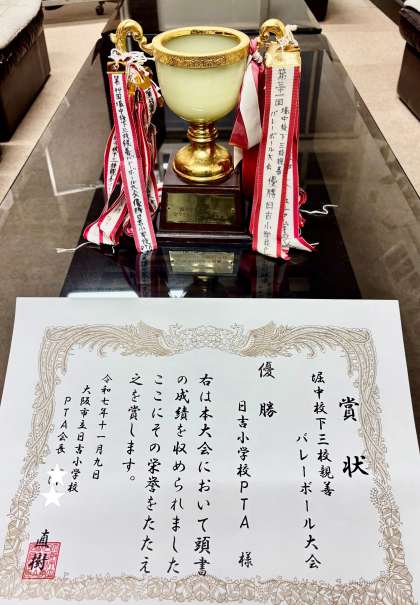 賞状
堀中校下三校親善
バレーボール大会
優勝
日吉小学校PTA 様
右は本大会において頭書
の成績を収められました
ここにその栄誉をたたえ
之を賞します。
令和七年十一月九日
大阪市立日吉小学校
PTA会長
直樹
堀中校下三校親善
バレーボール大会
優勝日吉小学校